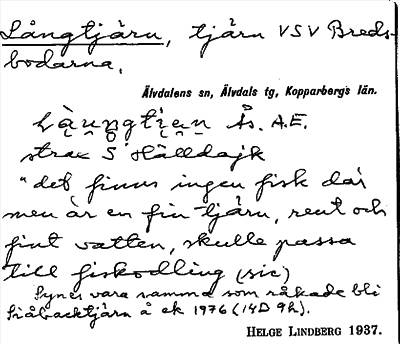 Långtjärn, tjärn VSV Breds-
bodarna.
Älvdalens sn, Älvdals tg, Kopparbergs län.
Làu̯ŋgti̯en Ås. A.E.
strax S Hälldajk
"det finns ingen fisk där
men är en fin tjärn, rent och
fint vatten, skulle passa
till fiskodling (sic)
Synes vara samma som råkade bli
Snåbacktjärn å ek 1976 (14D 9h).
HELGE LINDBERG 1937.